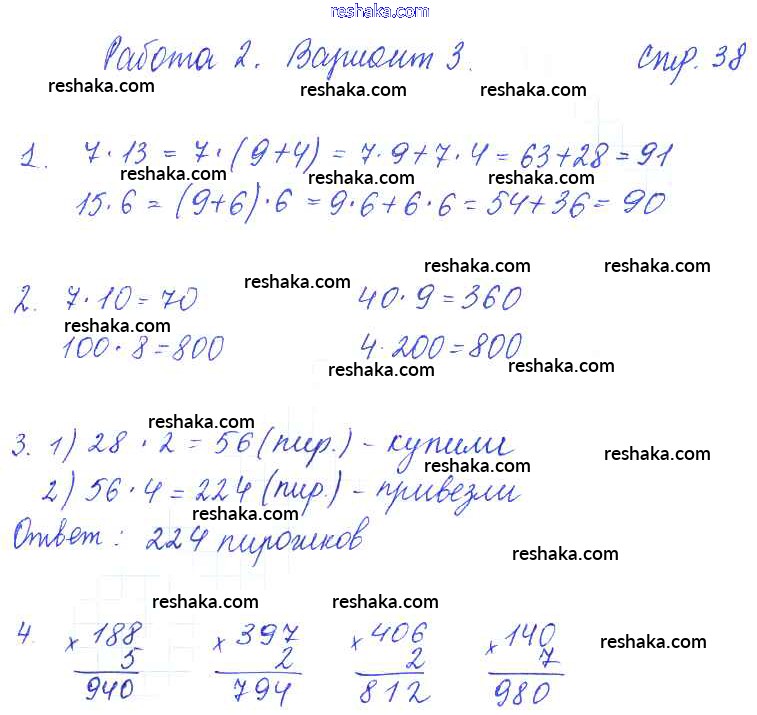 reshaka.com
Работа 2. Вариант 3. стр. 38
reshaka.com reshaka.com reshaka.com
1. 7·13=7·(9+4)=7·9+7·4=63+28=91
reshaka.com reshaka.com reshaka.com
15·6=(9+6)·6=9·6+6·6=54+36=90
reshaka.com reshaka.com reshaka.com
2. 7·10=70 40·9=360
reshaka.com
100·8=800 4·200=800
reshaka.com reshaka.com
reshaka.com
3. 1) 28·2=56 (пир.) - купили
reshaka.com reshaka.com
2) 56·4=224 (пир.) - привезли
reshaka.com reshaka.com
Ответ: 224 пирожков
reshaka.com
reshaka.com reshaka.com
4. ×188 ×397 ×406 ×140
reshaka.com
5 2 2 7
940 794 812 980